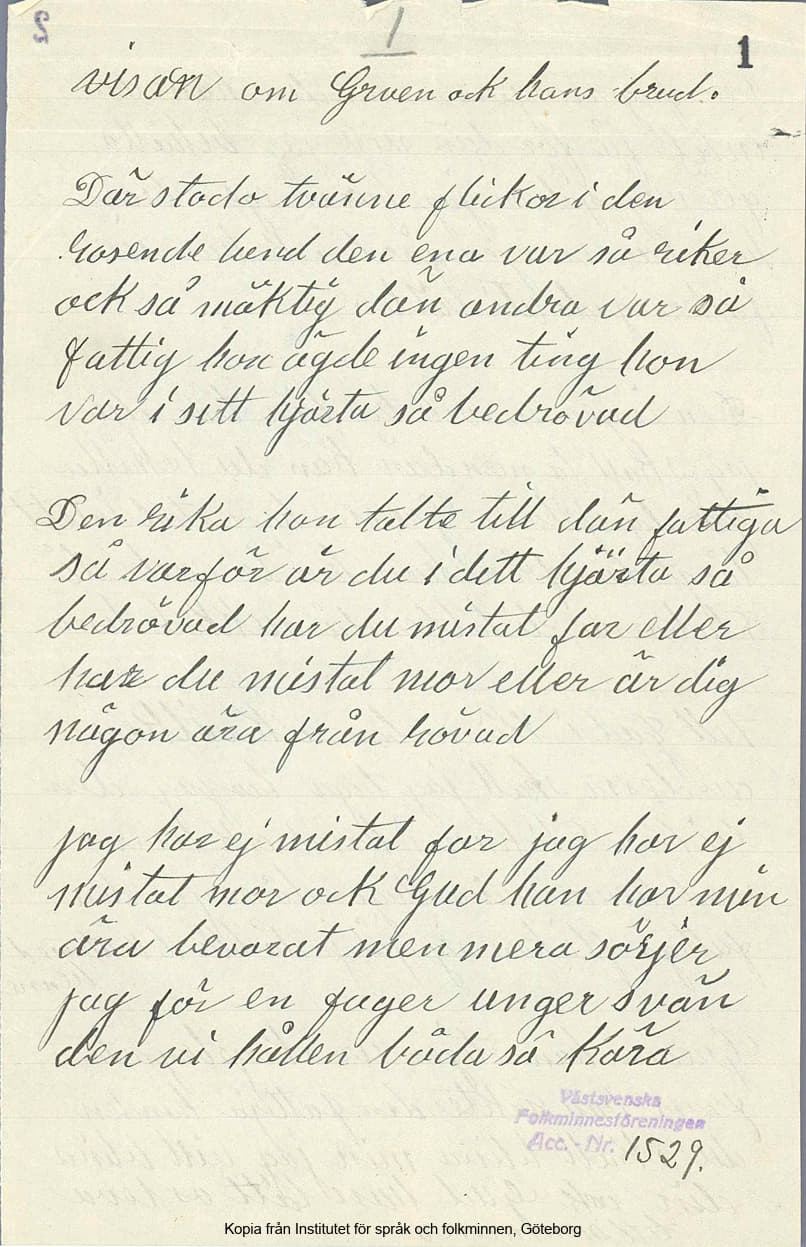 2
1
1
visan om Grven ock hans brud.
Där stodo tvänne flickor i den
rosende lund den ena var så riker
ock så mäktig dän andra var så
fattig hon ägde ingen ting hon
var i sitt hjärta så bedrövad
Den rika hon talte till dän fattiga
så varför är du i ditt hjärta så
bedrövad har du mistat far eller
har du mistat mor eller är dig
någon ära från rövad
jag har ej mistat far jag har ej
mistat mor ock Gud han har min
ära bevarat men mera sörjer
jag för en fager unger svän
den vi hållen båda så kära
Västsvenska
Folkminnesföreningen
Acc.-Nr. 1529.
Kopia från Institutet för språk och folkminnen, Göteborg